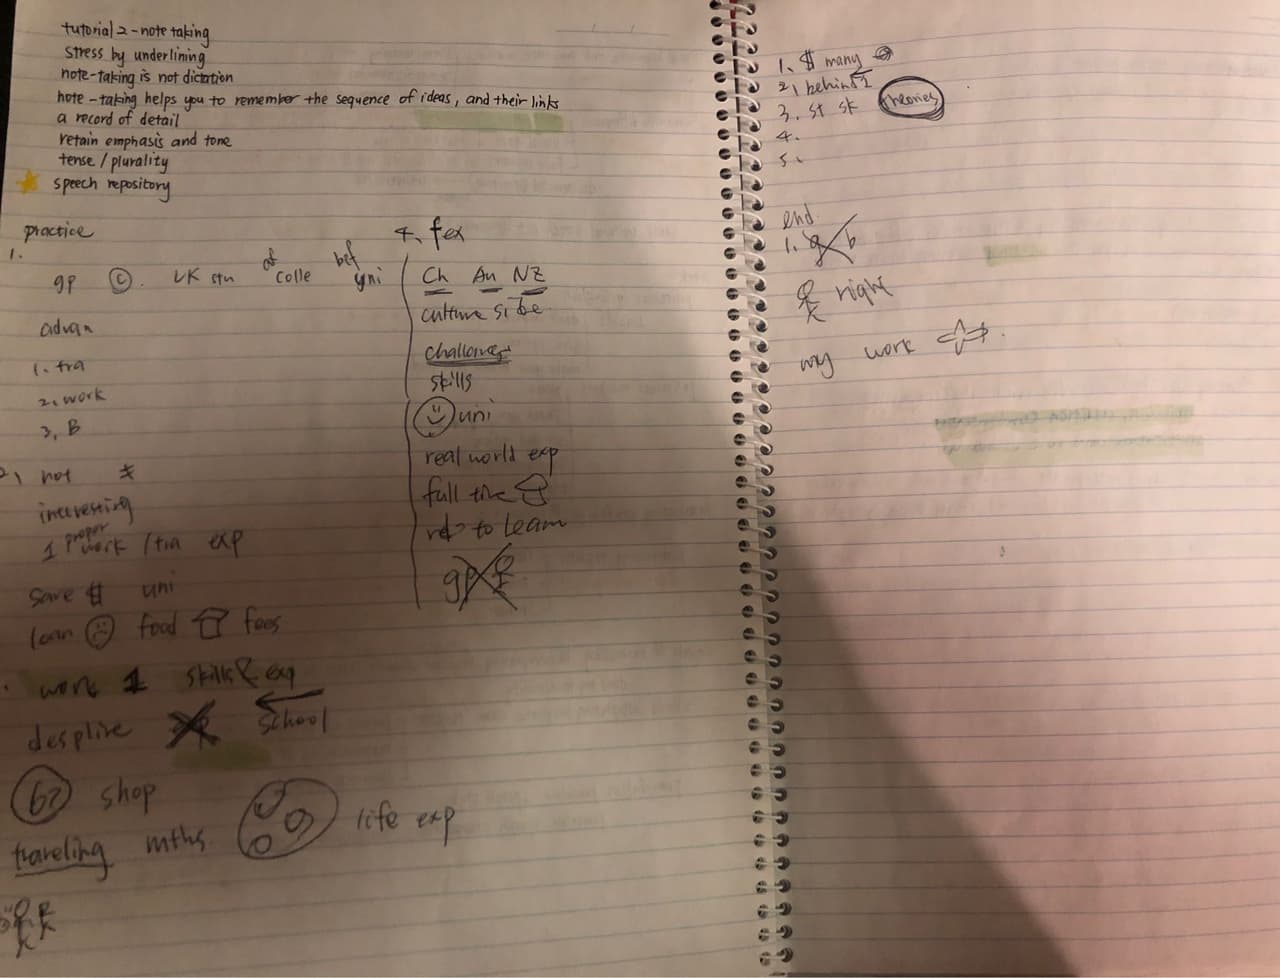 tutorial 2 - note taking
stress by underlining
note-taking is not dictation
note-taking helps you to remember the sequence of ideas, and their links
a record of detail
retain emphasis and tone
tense / plurality
speech repository
practice
1.
gp © UK stu af colle bef uni
advan
1. tra
2. work
3. B
2, not
interesting
1 proper work / tra exp
save $ uni
loan food fees
work 1 skills & exp
school
shop
traveling mths life exp
4, fex
Ch Au NZ
culture
skills
uni
real world exp
full
to learn
gp
1. $ many
2, behind 1
3. st sk theories
4.
5.
end
1. b
right
my work